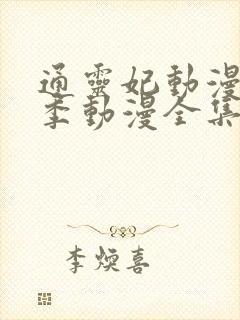 通靈妃動漫
季動漫全集
李煥喜